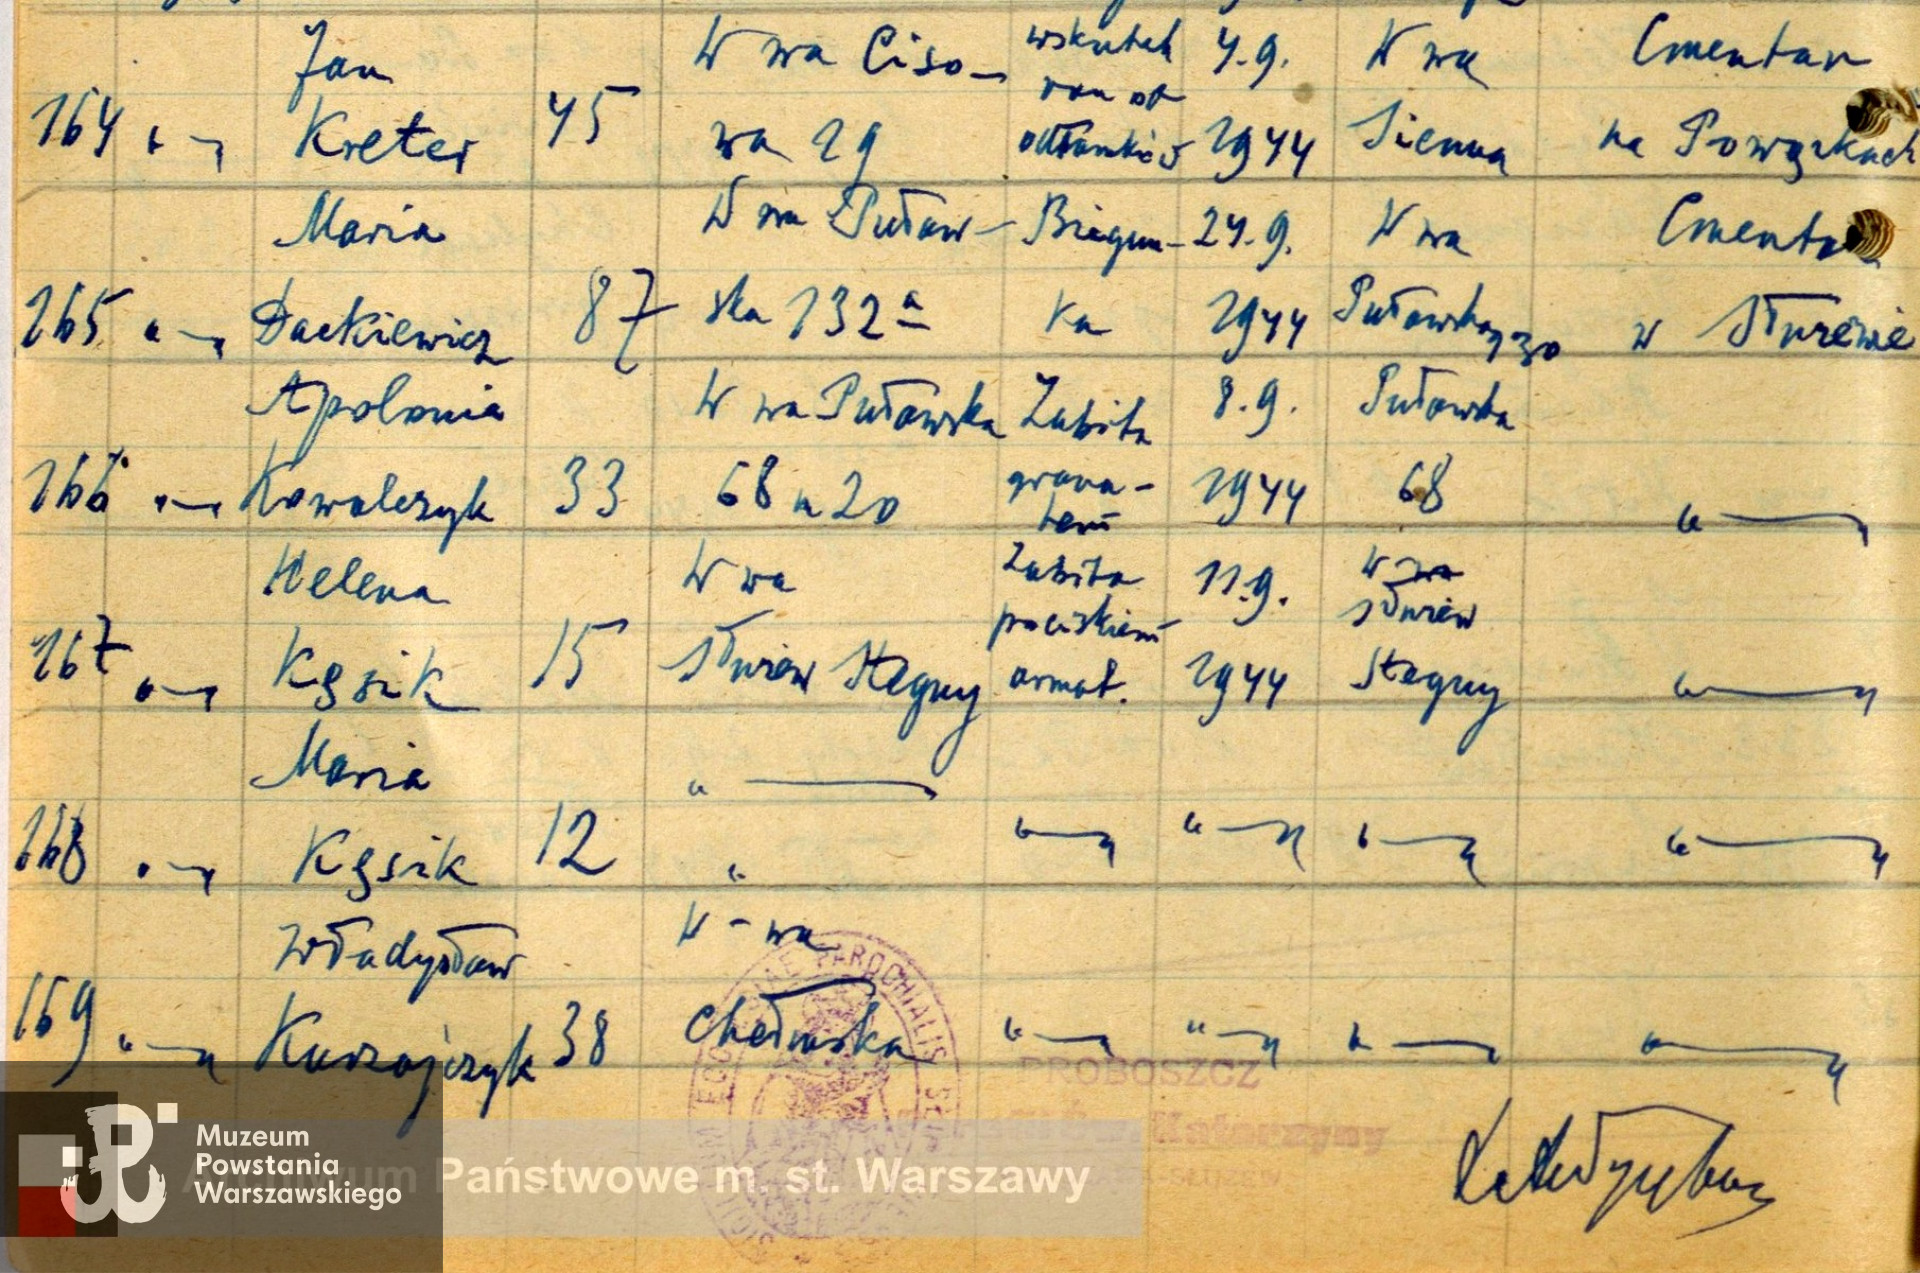 Jan W wa Ciso- wskutek 4.9. W wa Cmentarz
ran od
164 „ Kreter 45 wa 29 odłamków 1944 Sienna na Powązkach
Maria W wa Puław- Biegun- 24.9. W wa Cmentarz
165 „ Dackiewicz 87 ska 132a ka 1944 Puławska w Służewie
Apolonia W wa Puławska Zabita 8.9. Puławska
166 „ Kowalczyk 33 68 m 20 grana- 1944 68 „
tem
Helena W wa Zabita 11.9. W wa
pociskiem Służew
167 „ Kęsik 15 Służew Stegny armat. 1944 Stegny „
Maria „
168 „ Kęsik 12 „ „ „ „ „
Władysław W-wa
169 „ Kurzajczyk 38 Chełmska „ „ „ „
PAROCHIALIS
PROBOSZCZ
Św. Katarzyny
SŁUŻEW
Muzeum
Powstania
Warszawskiego
Archiwum Państwowe m. st. Warszawy